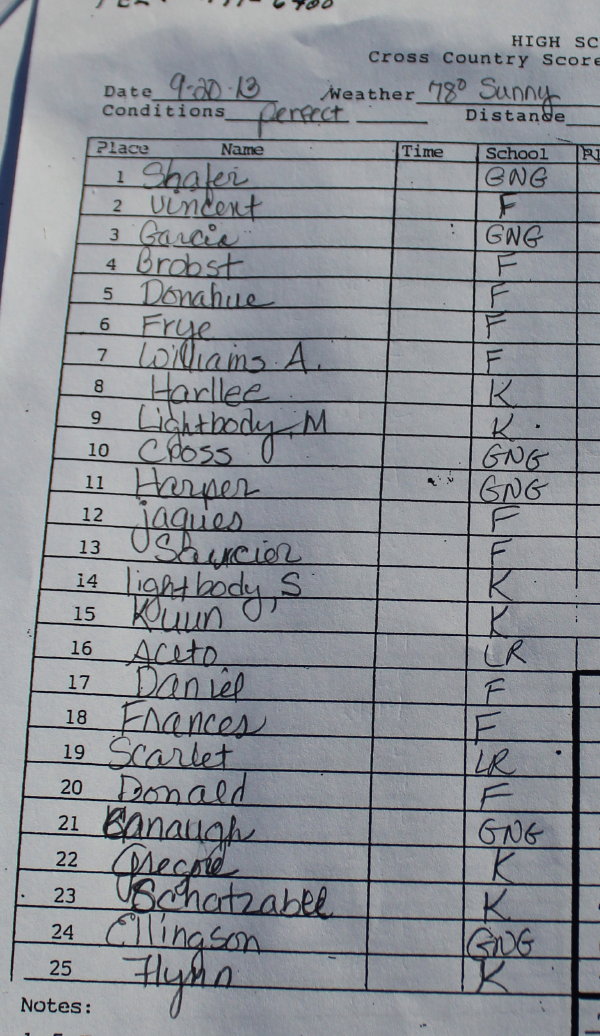 HIGH SC
Cross Country Score
Date 9-20-13 Weather 78° Sunny
Conditions perfect Distance
Place Name Time School
1 Shafer GNG
2 Vincent F
3 Garcia GNG
4 Brobst F
5 Donahue F
6 Frye F
7 Williams A. F
8 Harllee K
9 Lightbody, M K
10 Cross GNG
11 Harper GNG
12 jaques F
13 F
14 lightbody, S K
15 K
16 Aceto LR
17 Daniel F
18 Frances F
19 Scarlet LR
20 Donald F
21 GNG
22 K
23 Schatzabel K
24 Ellingson GNG
25 Flynn K
Notes: